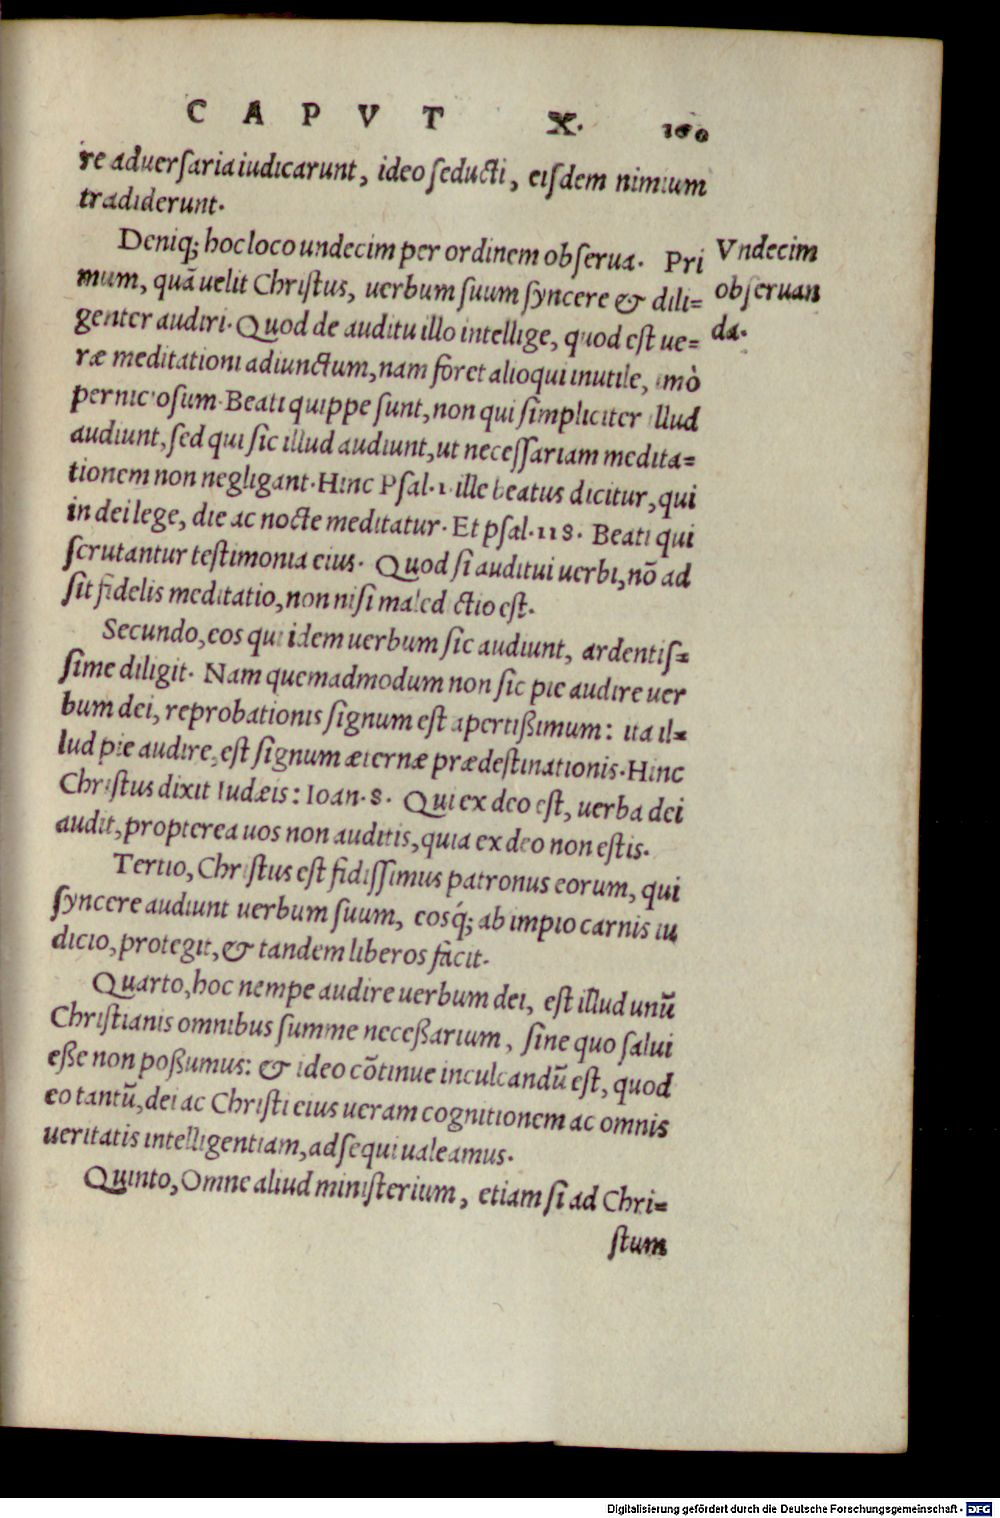 CAPVT X. 160
re aduerſaria iudicarunt, ideo ſeducti, eiſdem nimium
tradiderunt.
Deniq; hoc loco undecim per ordinem obſerua. Pri
Vndecim
mum, quā uelit Chriſtus, uerbum ſuum ſyncere & dili=
obſeruan
genter audiri. Quod de auditu illo intellige, quod eſt ue=
da.
ræ meditationi adiunctum, nam foret alioqui inutile, imò
pernicioſum. Beati quippe ſunt, non qui ſimpliciter illud
audiunt, ſed qui ſic illud audiunt, ut neceſſariam medita=
tionem non negligant. Hinc Pſal. 1. ille beatus dicitur, qui
in dei lege, die ac nocte meditatur. Et pſal. 118. Beati qui
ſcrutantur teſtimonia eius. Quod ſi auditui uerbi, nō ad
ſit fidelis meditatio, non niſi maledictio eſt.
Secundo, eos qui idem uerbum ſic audiunt, ardentiſ=
ſime diligit. Nam quemadmodum non ſic pie audire uer
bum dei, reprobationis ſignum eſt apertißimum: ita il=
lud pie audire, eſt ſignum æternæ prædeſtinationis. Hinc
Chriſtus dixit Iudæis: Ioan. 8. Qui ex deo eſt, uerba dei
audit, propterea uos non auditis, quia ex deo non eſtis.
Tertio, Chriſtus eſt fidiſſimus patronus eorum, qui
ſyncere audiunt uerbum ſuum, eosq́; ab impio carnis iu
dicio, protegit, & tandem liberos facit.
Quarto, hoc nempe audire uerbum dei, eſt illud unū
Chriſtianis omnibus ſumme neceßarium, ſine quo ſalui
eße non poßumus: & ideo cōtinue inculcandū eſt, quod
eo tantū, dei ac Chriſti eius ueram cognitionem ac omnis
ueritatis intelligentiam, adſequi ualeamus.
Quinto, Omne aliud miniſterium, etiam ſi ad Chri=
ſtum
Digitalisierung gefördert durch die Deutsche Forschungsgemeinschaft - DFG